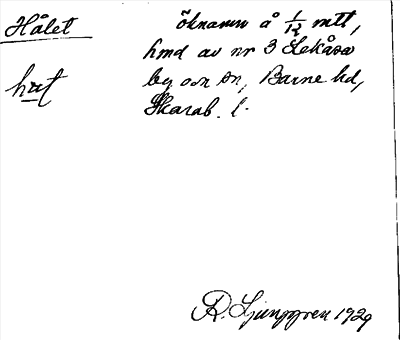 Hålet öknamn å 1/12 mtt,
hmd av nr 3 Lekåsa
hɷt by o sn, Barne hd,
Skarab. l.
R. Ljunggren 1929